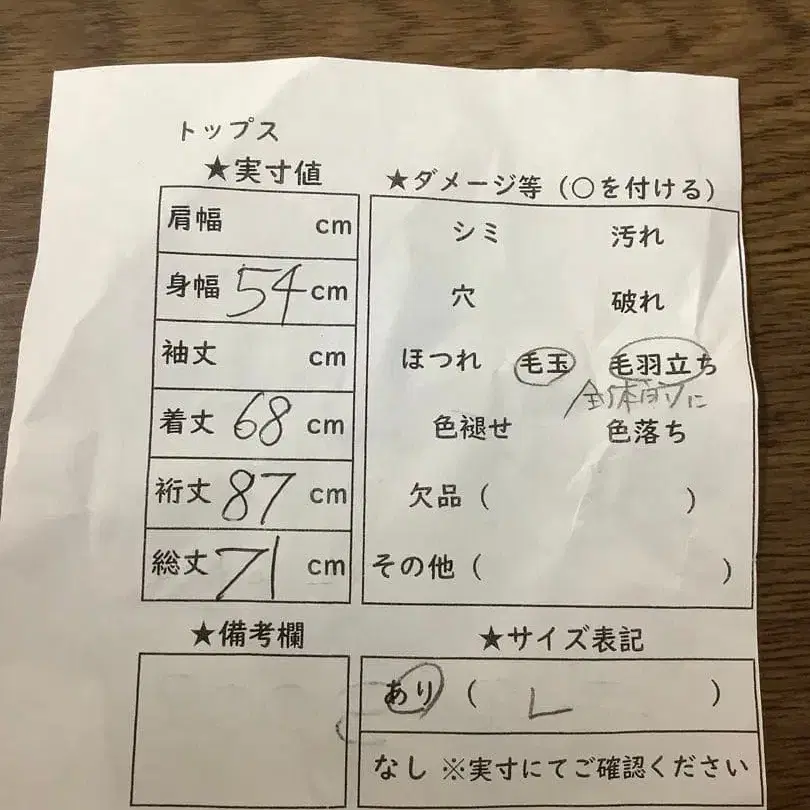 トップス
★実寸値
肩幅 cm
身幅 54 cm
袖丈 cm
着丈 68 cm
裄丈 87 cm
総丈 71 cm
★ダメージ等（○を付ける）
シミ 汚れ
穴 破れ
ほつれ 毛玉 毛羽立ち
全体的に
色褪せ 色落ち
欠品（ ）
その他（ ）
★備考欄
★サイズ表記
あり（ L ）
なし ※実寸にてご確認ください